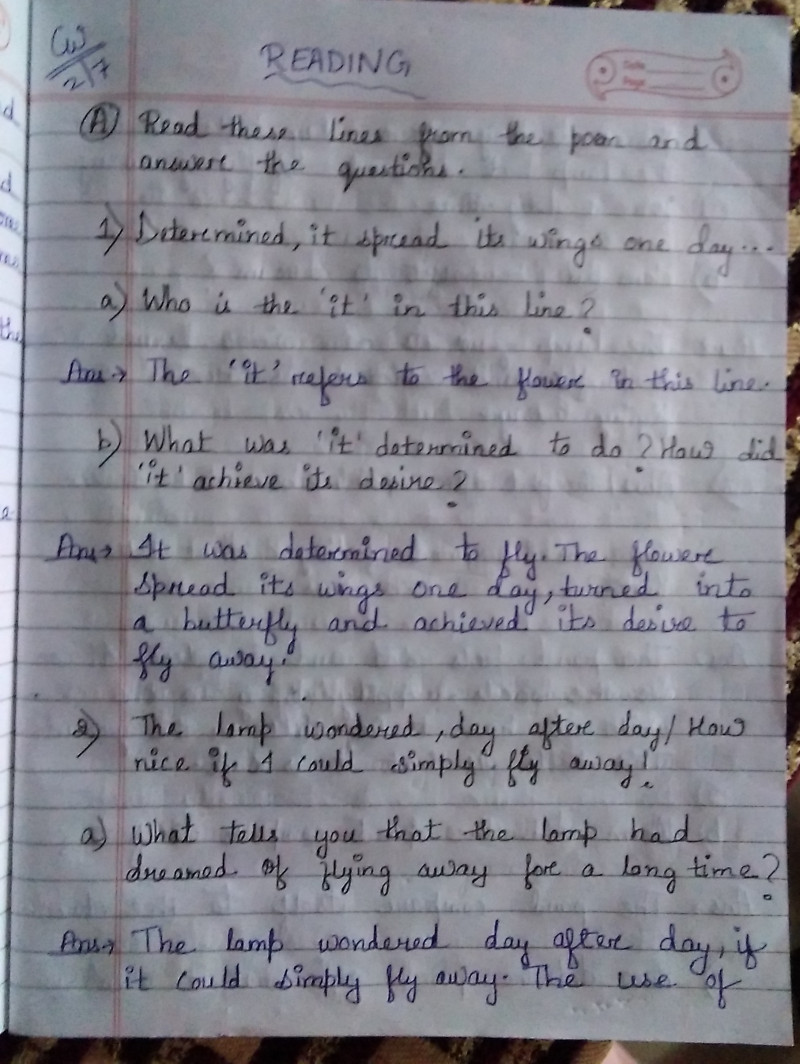 CW
2/7
READING
Date
Page
(A) Read these lines from the poem and
answere the questions.
1) Determined, it spread its wings one day...
a) Who is the 'it' in this line?
Ans→ The 'it' refers to the flower in this line.
b) What was 'it' determined to do? How did
'it' achieve its desire?
Ans→ It was determined to fly. The flower
spread its wings one day, turned into
a butterfly and achieved its desire to
fly away.
2) The lamp wondered, day after day/ How
nice if I could simply fly away!
a) What tells you that the lamp had
dreamed of flying away for a long time?
Ans→ The lamp wondered day after day, if
it could simply fly away. The use of